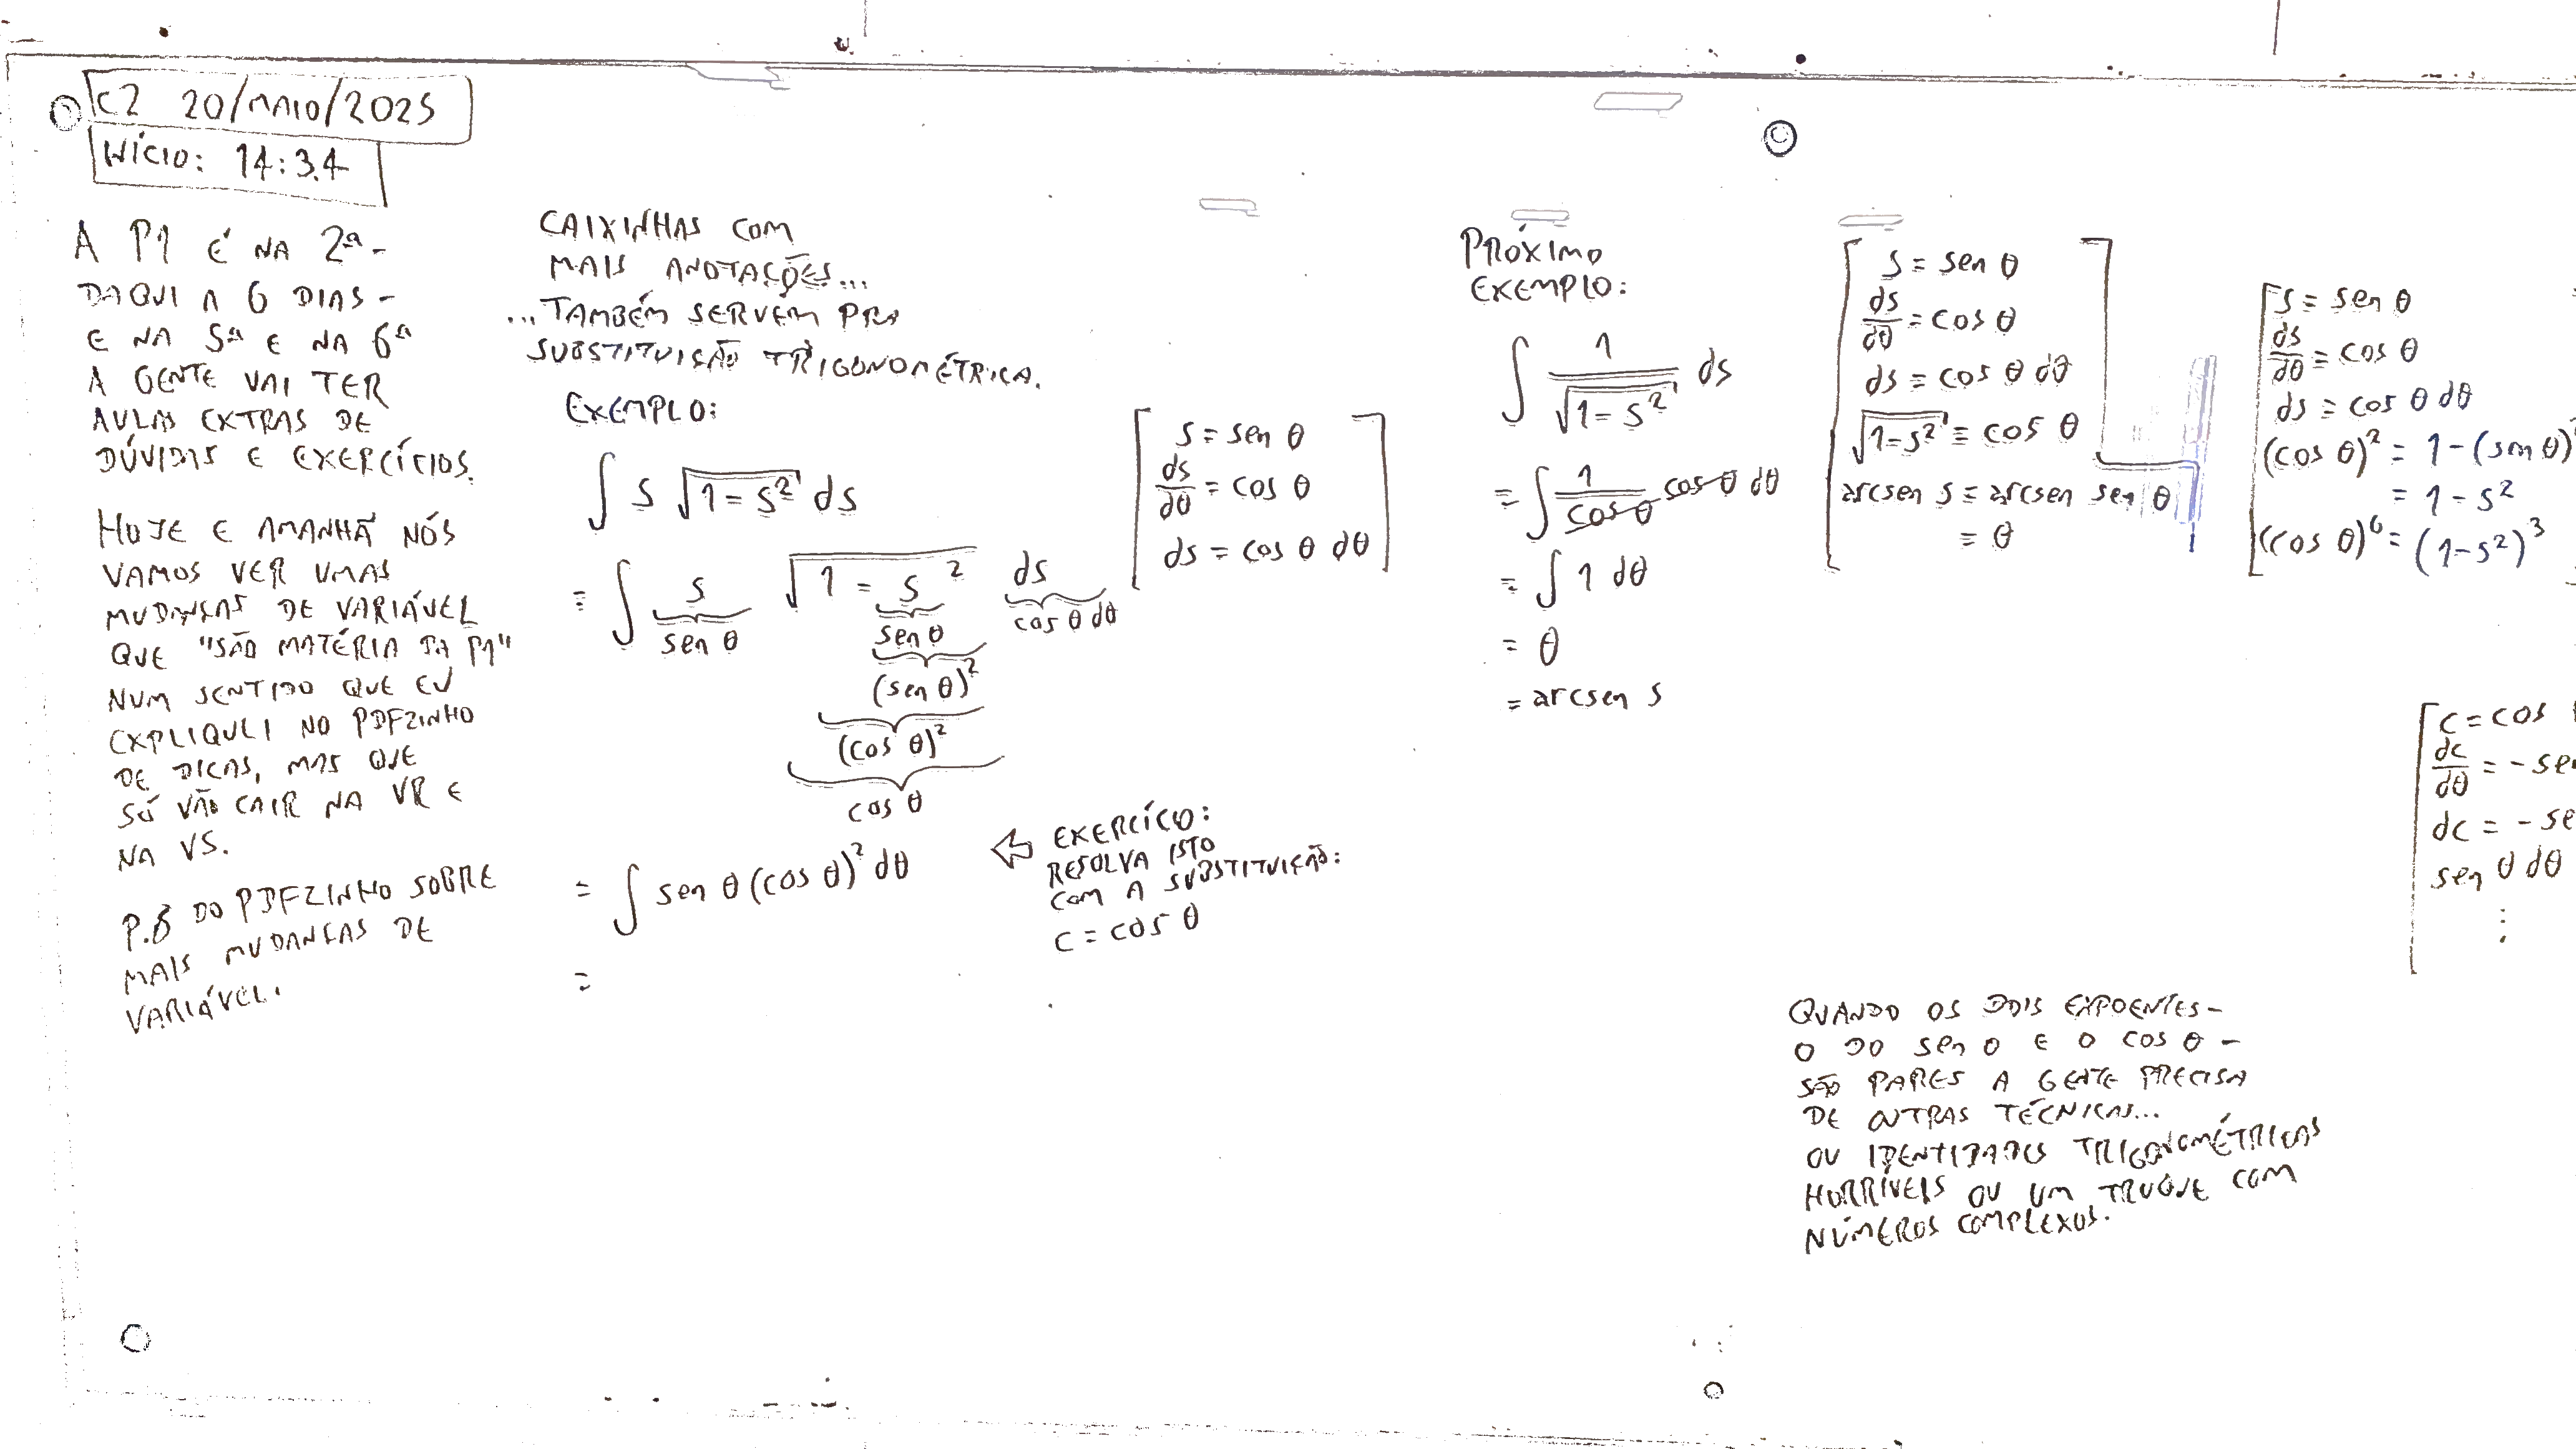 C2 20/MAIO/2025
INÍCIO: 14:34
A P1 É NA 2ª-
DAQUI A 6 DIAS -
E NA 5ª E NA 6ª
A GENTE VAI TER
AULAS EXTRAS DE
DÚVIDAS E EXERCÍCIOS.
HOJE E AMANHÃ NÓS
VAMOS VER UMAS
MUDANÇAS DE VARIÁVEL
QUE "SÃO MATÉRIA DA P1"
NUM SENTIDO QUE EU
EXPLIQUEI NO PDFZINHO
DE DICAS, MAS QUE
SÓ VÃO CAIR NA VR E
NA VS.
P.8 DO PDFZINHO SOBRE
MAIS MUDANÇAS DE
VARIÁVEL.
CAIXINHAS COM
MAIS ANOTAÇÕES...
...TAMBÉM SERVEM PRA
SUBSTITUIÇÃO TRIGONOMÉTRICA.
EXEMPLO:
∫ s √(1-s²) ds
= ∫ s √(1-s²) ds
sen θ sen θ cos θ dθ
(sen θ)²
(cos θ)²
cos θ
= ∫ sen θ (cos θ)² dθ
=
⇐ EXERCÍCO:
RESOLVA ISTO
COM A SUBSTITUIÇÃO:
c = cos θ
[s = sen θ
ds/dθ = cos θ
ds = cos θ dθ]
PRÓXIMO
EXEMPLO:
∫ 1/√(1-s²) ds
= ∫ 1/cos θ cos θ dθ
= ∫ 1 dθ
= θ
= arcsen s
[s = sen θ
ds/dθ = cos θ
ds = cos θ dθ
√(1-s²) = cos θ
arcsen s = arcsen sen θ
= θ]
[s = sen θ
ds/dθ = cos θ
ds = cos θ dθ
(cos θ)² = 1-(sen θ)
= 1-s²
(cos θ)⁶ = (1-s²)³
[c = cos
dc/dθ = - se
dc = - se
sen θ dθ
⋮
QUANDO OS DOIS EXPOENTES-
O DO sen θ E O cos θ -
SÃO PARES A GENTE PRECISA
DE OUTRAS TÉCNICAS...
OU IDENTIDADES TRIGONOMÉTRICAS
HORRÍVEIS OU UM TRUQUE COM
NÚMEROS COMPLEXOS.